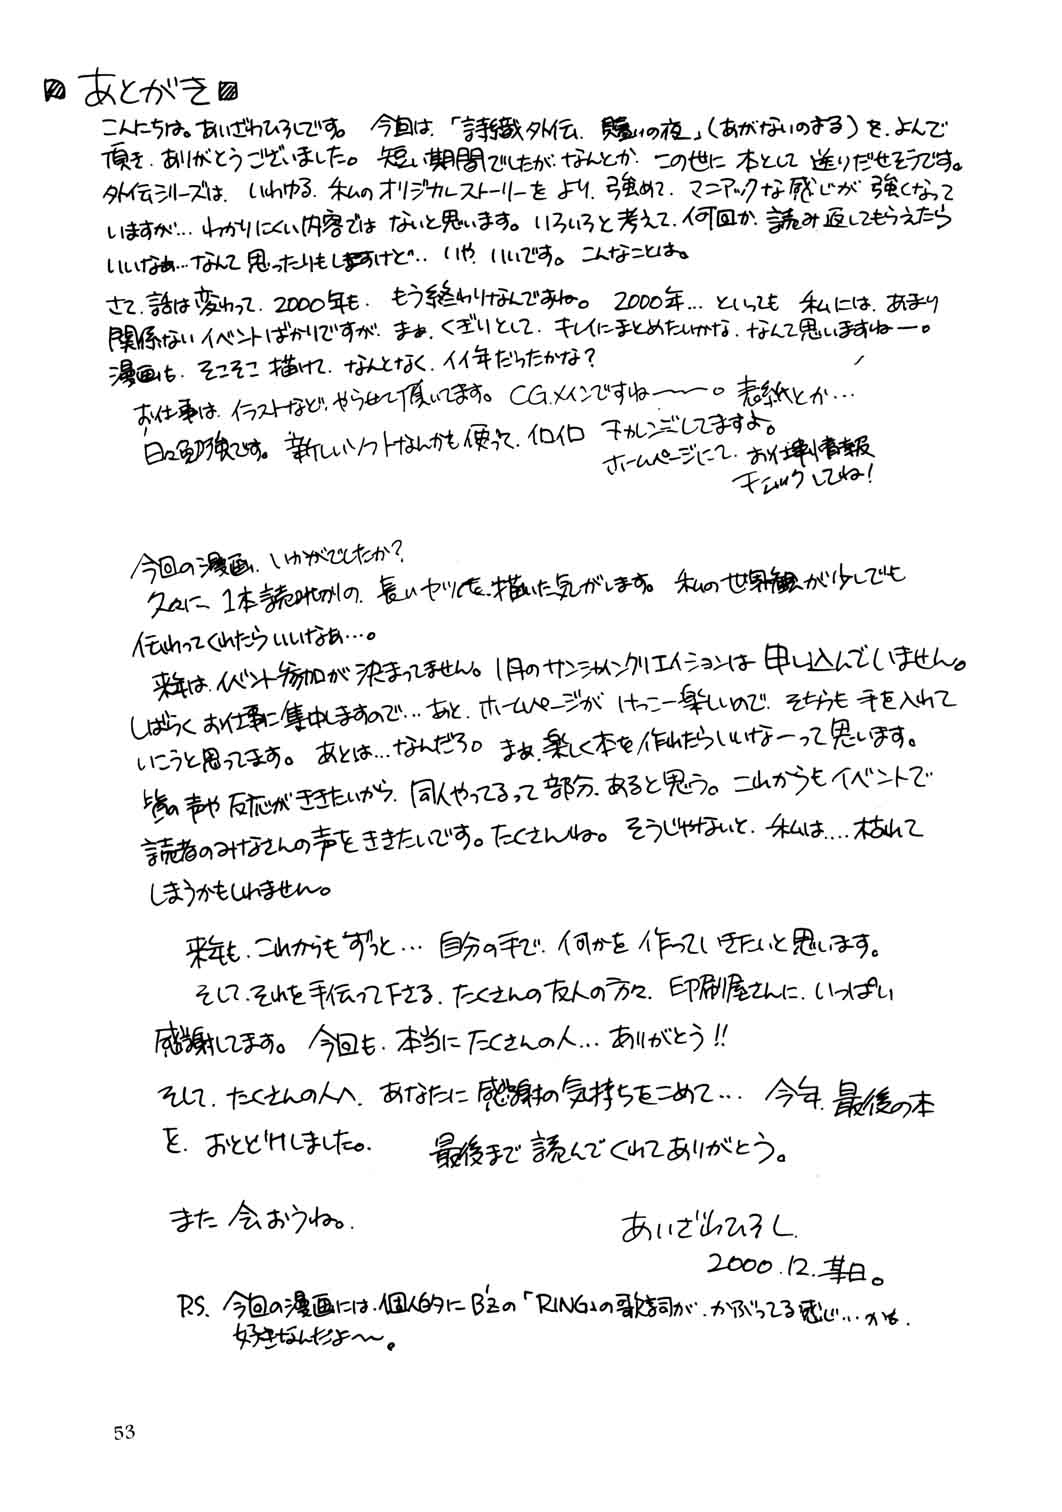 あとがき
こんにちは。あいざわひろしです。 今回は、「詩織外伝、贖いの夜」(あがないのよる)を、よんで
頂き、ありがとうございました。 短い期間でしたが、なんとか、この世に 本として 送りだせそうです。
外伝シリーズは、いわゆる、私のオリジナルストーリーを より、強めて、マニアックな感じが 強くなって
いますが… わかりにくい内容では ないと思います。いろいろと考えて、何回か、読み返してもらえたら
いいなぁ…なんて 思ったりもしますけど… いや、いいです。こんなことは。
さて、話は変わって、2000年も、もう終わりなんですね。 2000年…といっても 私には、あまり
関係ないイベントばかりですが、まぁ、くぎりとして、キレイにまとめたいかな、なんて思いますねー。
漫画も、そこそこ 描けて、なんとなく、イイ年だったかな?
お仕事は、イラストなど、やらせて頂いてます。CG、メインですねー。表紙とか…
日々勉強です。新しいソフトなんかも使って、イロイロ チャレンジしてますよ。
ホームページにて、お仕事情報
チェックしてね!
今回の漫画、いかがでしたか?
久々に、1本読み切りの、長いヤツを、描いた気がします。 私の世界観が少しでも
伝わってくれたらいいなぁ…。
来年は、イベント参加が 決まってません。1月のサンシャインクリエイションは 申し込んでいません。
しばらく お仕事に集中しますので…あと、ホームページが けっこー楽しいので、そちらも 手を入れて
いこうと思ってます。 あとは…なんだろ。 まぁ、楽しく本を作れたらいいなーって思います。
皆の声や 反応がききたいから、同人やってるって部分、あると思う。これからもイベントで
読者のみなさんの声をききたいです。たくさんね。そうじゃないと、私は…枯れて
しまうかもしれません。
来年も、これからもずっと… 自分の手で、何かを 作っていきたいと思います。
そして、それを手伝って下さる、たくさんの友人の方々、印刷屋さんに、いっぱい
感謝してます。 今回も、本当に たくさんの人… ありがとう!!
そして、たくさんの人へ、あなたに感謝の気持ちをこめて… 今年、最後の本
を、おとどけしました。 最後まで読んでくれてありがとう。
また 会おうね。
あいざわひろし
2000.12.某日。
P.S. 今回の漫画には、個人的にB'zの「RING」の歌詞が、かぶってる感じ…かも、
好きなんだよ〜。
53